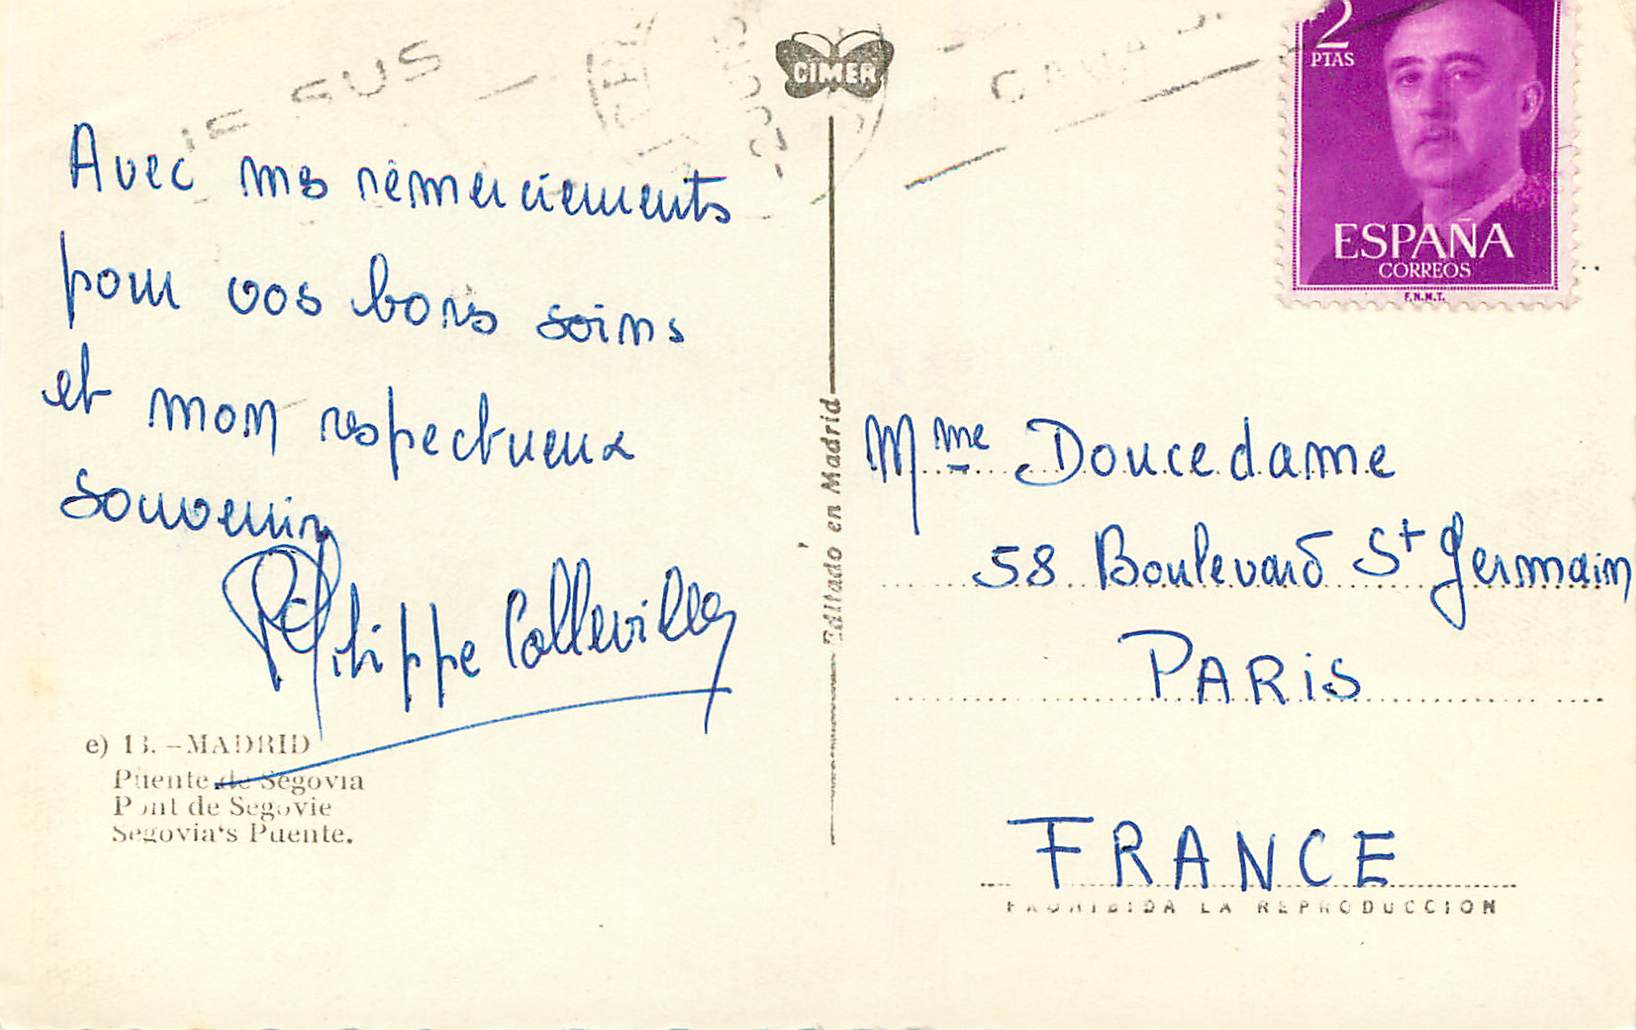 CIMER
Avec mes remerciements
pour vos bons soins
et mon respectueux
souvenir
Philippe Colleville
e) 13. - MADRID
Puente de Segovia
Pont de Segovie
Segovia's Puente.
Editado en Madrid
2
PTAS
ESPAÑA
CORREOS
F.N.M.T.
Mme Doucedame
58 Boulevard St Germain
PARiS
FRANCE
PROHIBIDA LA REPRODUCCION